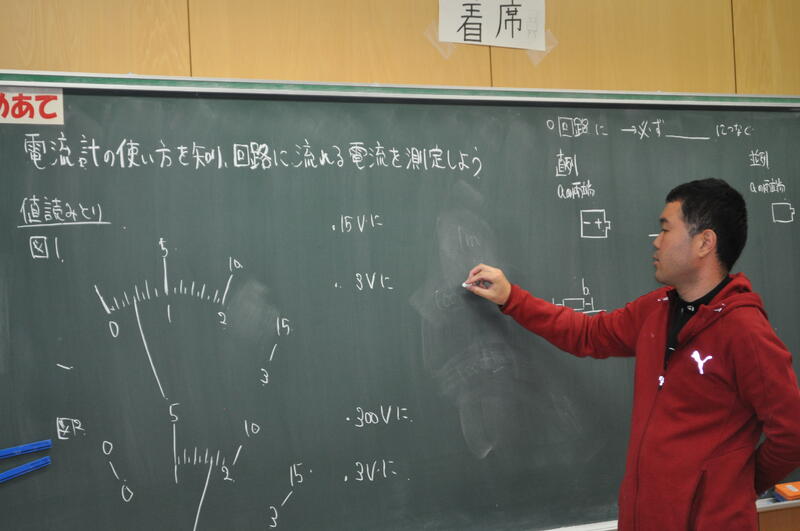 着席
めあて
電流計の使い方を知り、回路に流れる電流を測定しよう
値読みとり
図1.
0
5
10
15
0
1
2
3
・15Vに
・3Vに
図2.
0
5
10
15
0
2
3
・300Vに
・3Vに
○回路に →必ず＿＿＿につなぐ
直列
aの両端
- +
b
並列
aの両端
1m